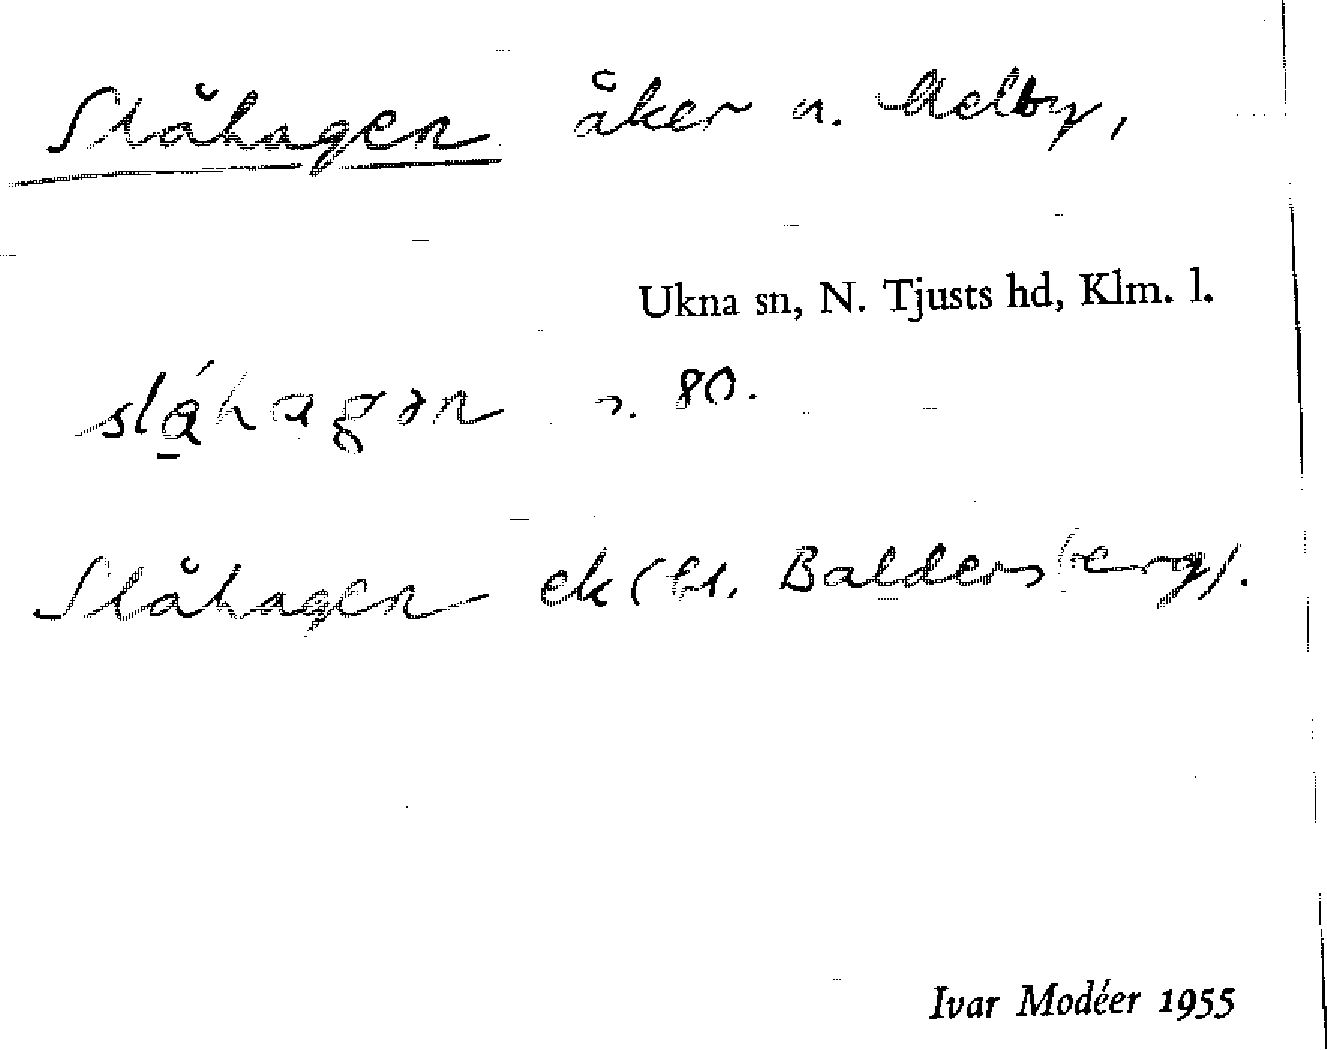 Slåhagen åker n. Melby,
Ukna sn, N. Tjusts hd, Klm. l.
slåhagən n. 80.
Slåhagen ek (Baldersberg).
Ivar Modéer 1955